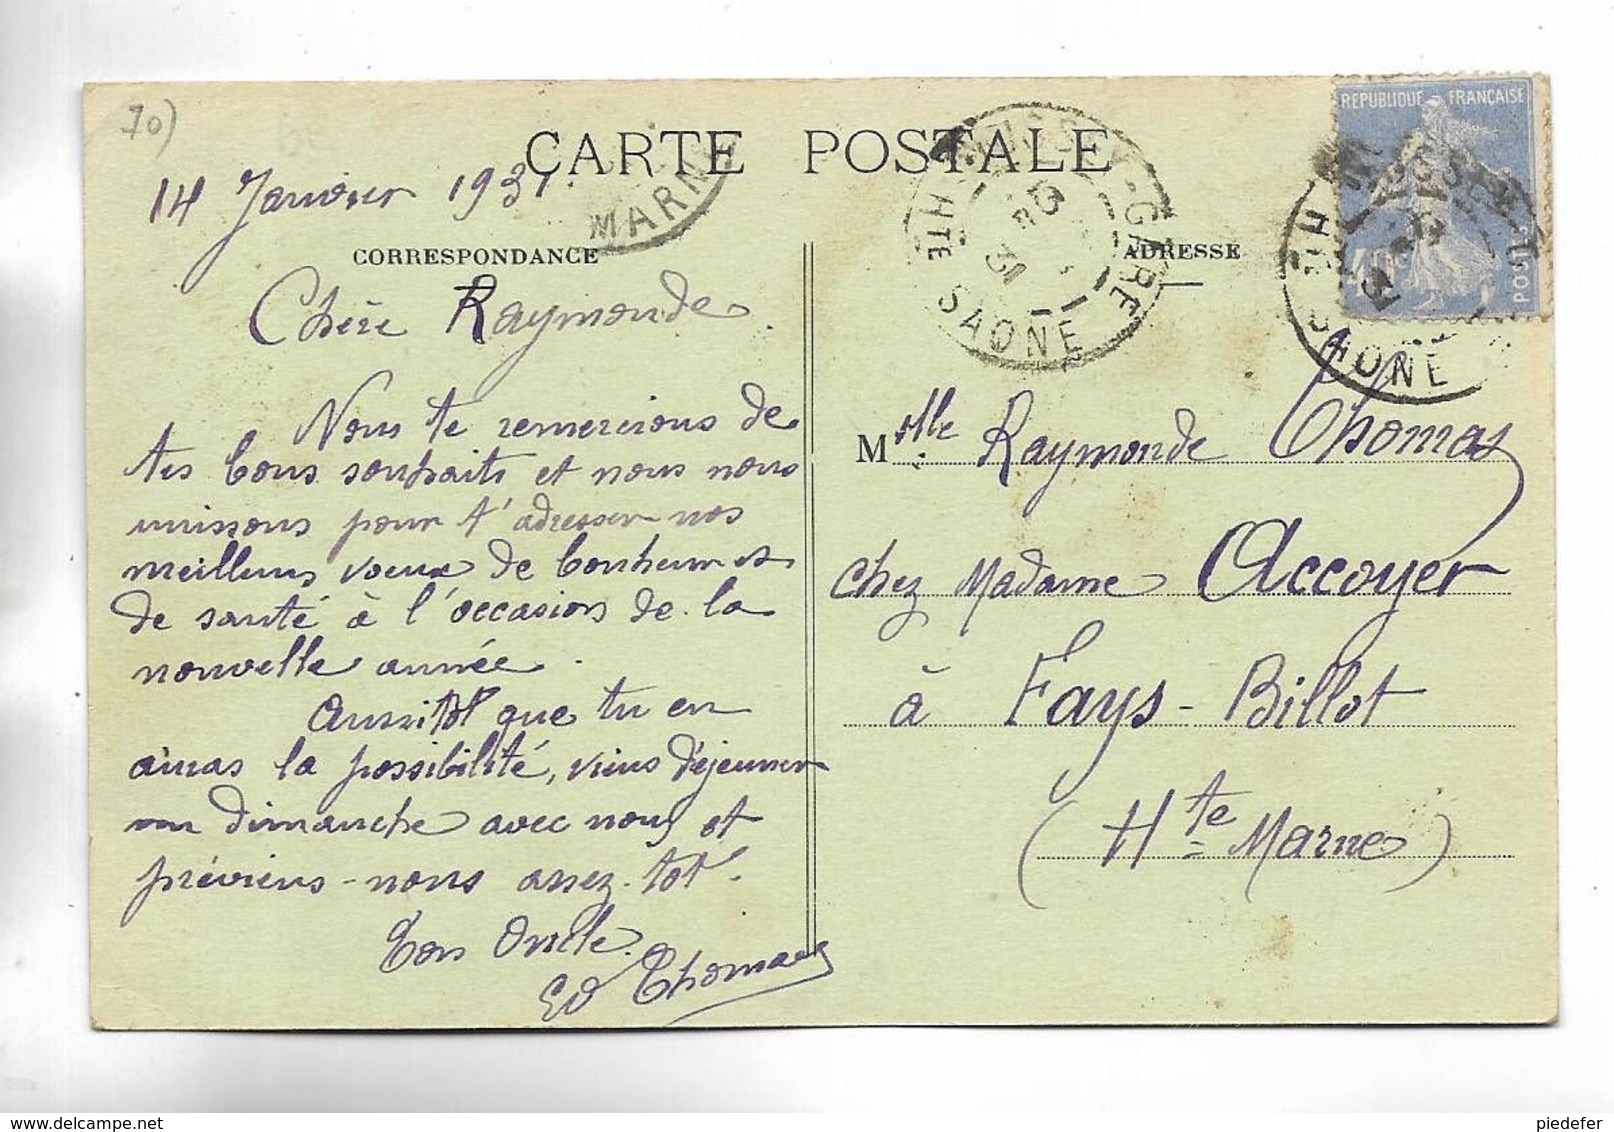 70)
CARTE POSTALE
14 Janvier 1931.
MARNE
JUSSEY-GARE
15
31
HTE SAONE
REPUBLIQUE FRANÇAISE
POSTES
HTE SAONE
CORRESPONDANCE
ADRESSE
Chère Raymonde
Nous te remercions de
tes bons souhaits et nous nous
unissons pour t'adresser nos
meilleurs voeux de bonheur et
de santé à l'occasion de la
nouvelle année.
Aussitôt que tu en
auras la possibilité, viens déjeuner
un dimanche avec nous et
préviens-nous assez tôt.
Ton Oncle.
Ed Thomas
Melle Raymonde Thomas
chez Madame Accoyer
à Fays-Billot
(Hte Marne)
piedefer